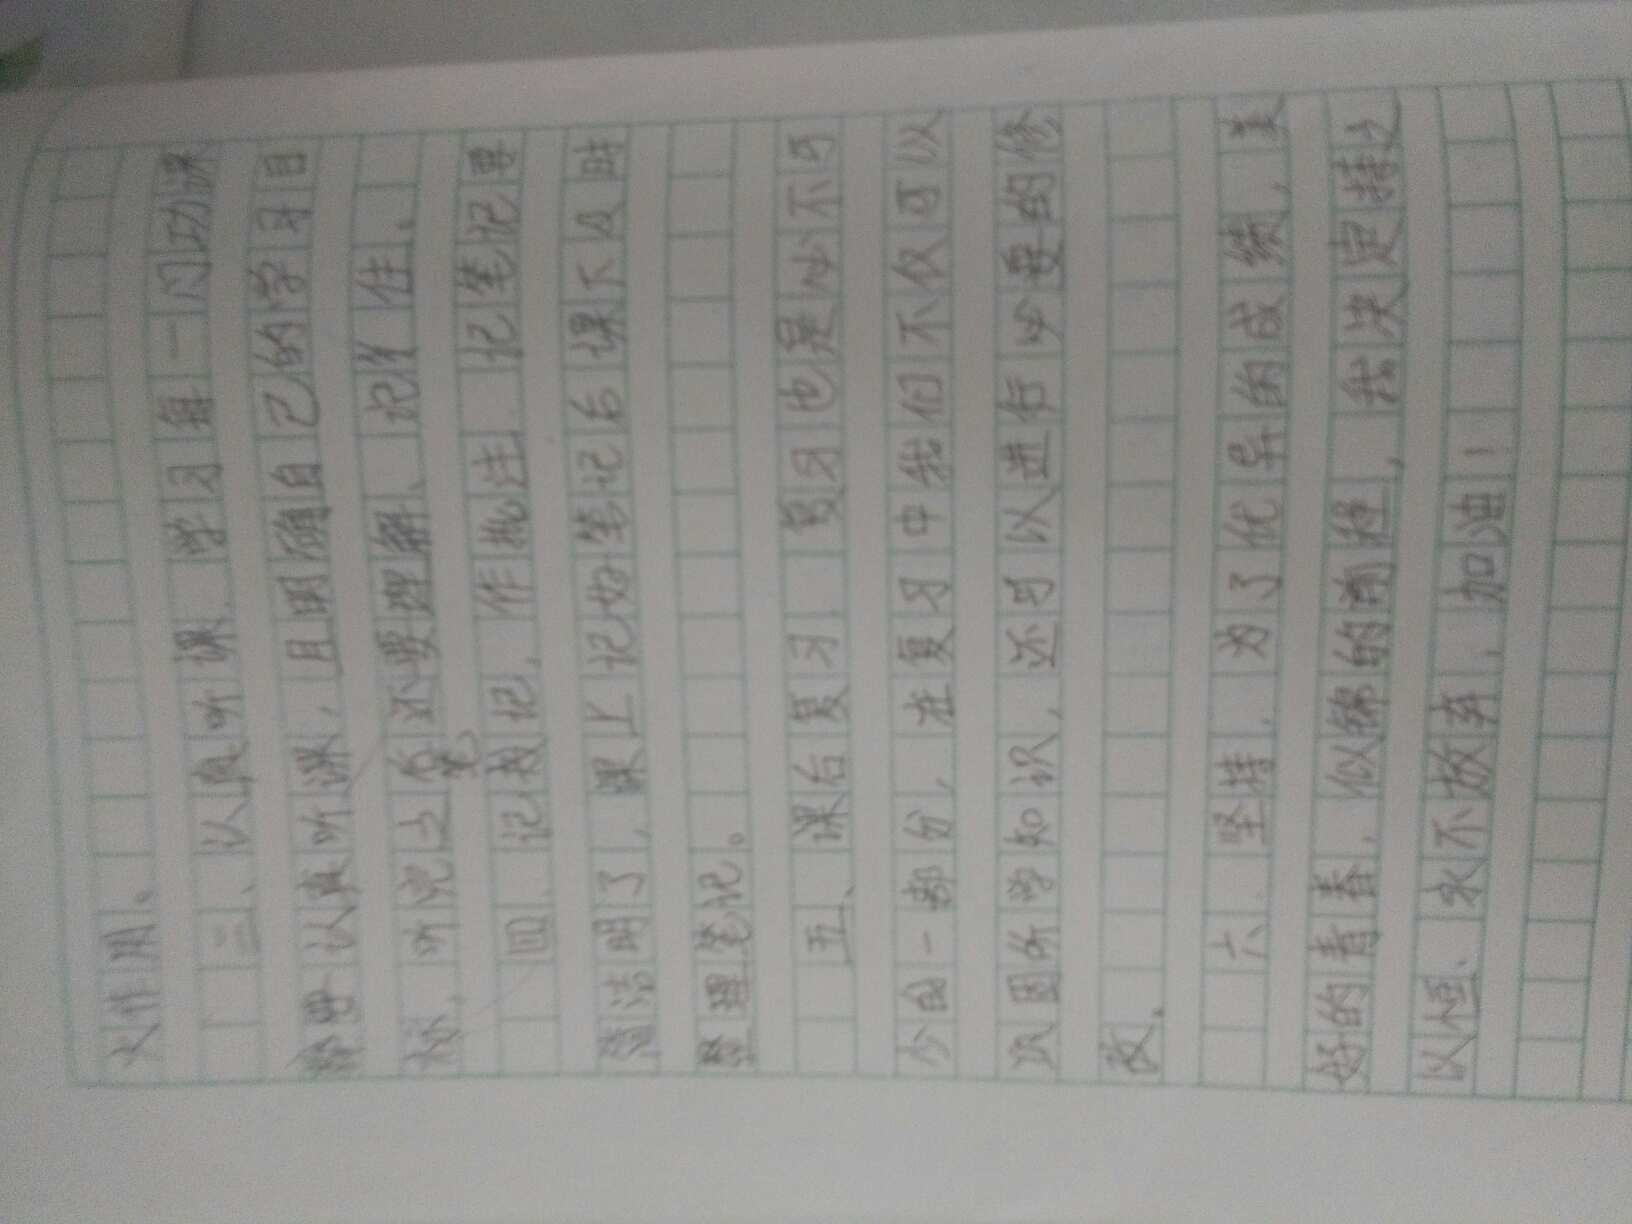 大作用。
三、认真听课.学习每一门功课
都要认真听课，且明确自己的学习目
标，听完之后还要理解、记住。
四.记笔记.作批注.记笔记要
简洁明了，课上记好笔记后课下及时
整理笔记。
五、课后复习.复习也是必不可
少的一部分，在复习中我们不仅可以
巩固所学知识，还可以进行必要的修
改。
六.坚持.为了优异的成绩，美
好的青春，似锦的前程，我决定持之
以恒、永不放弃，加油！